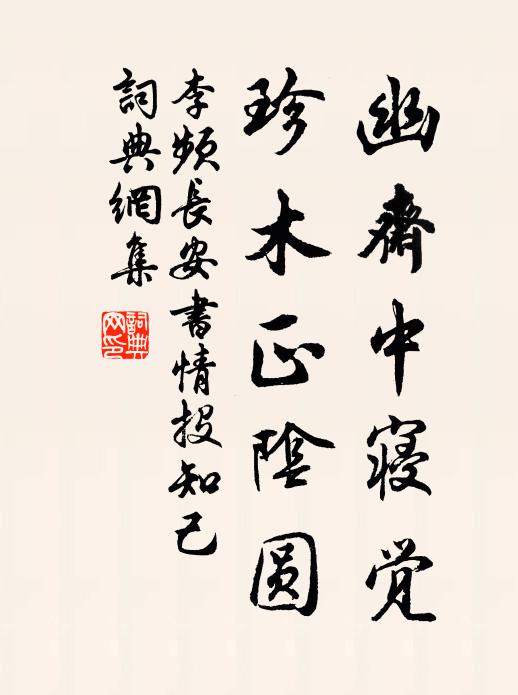 幽齋中寢觉
珍木正陰圆
李頻長安書情投知己
詞典網集
詞典网印